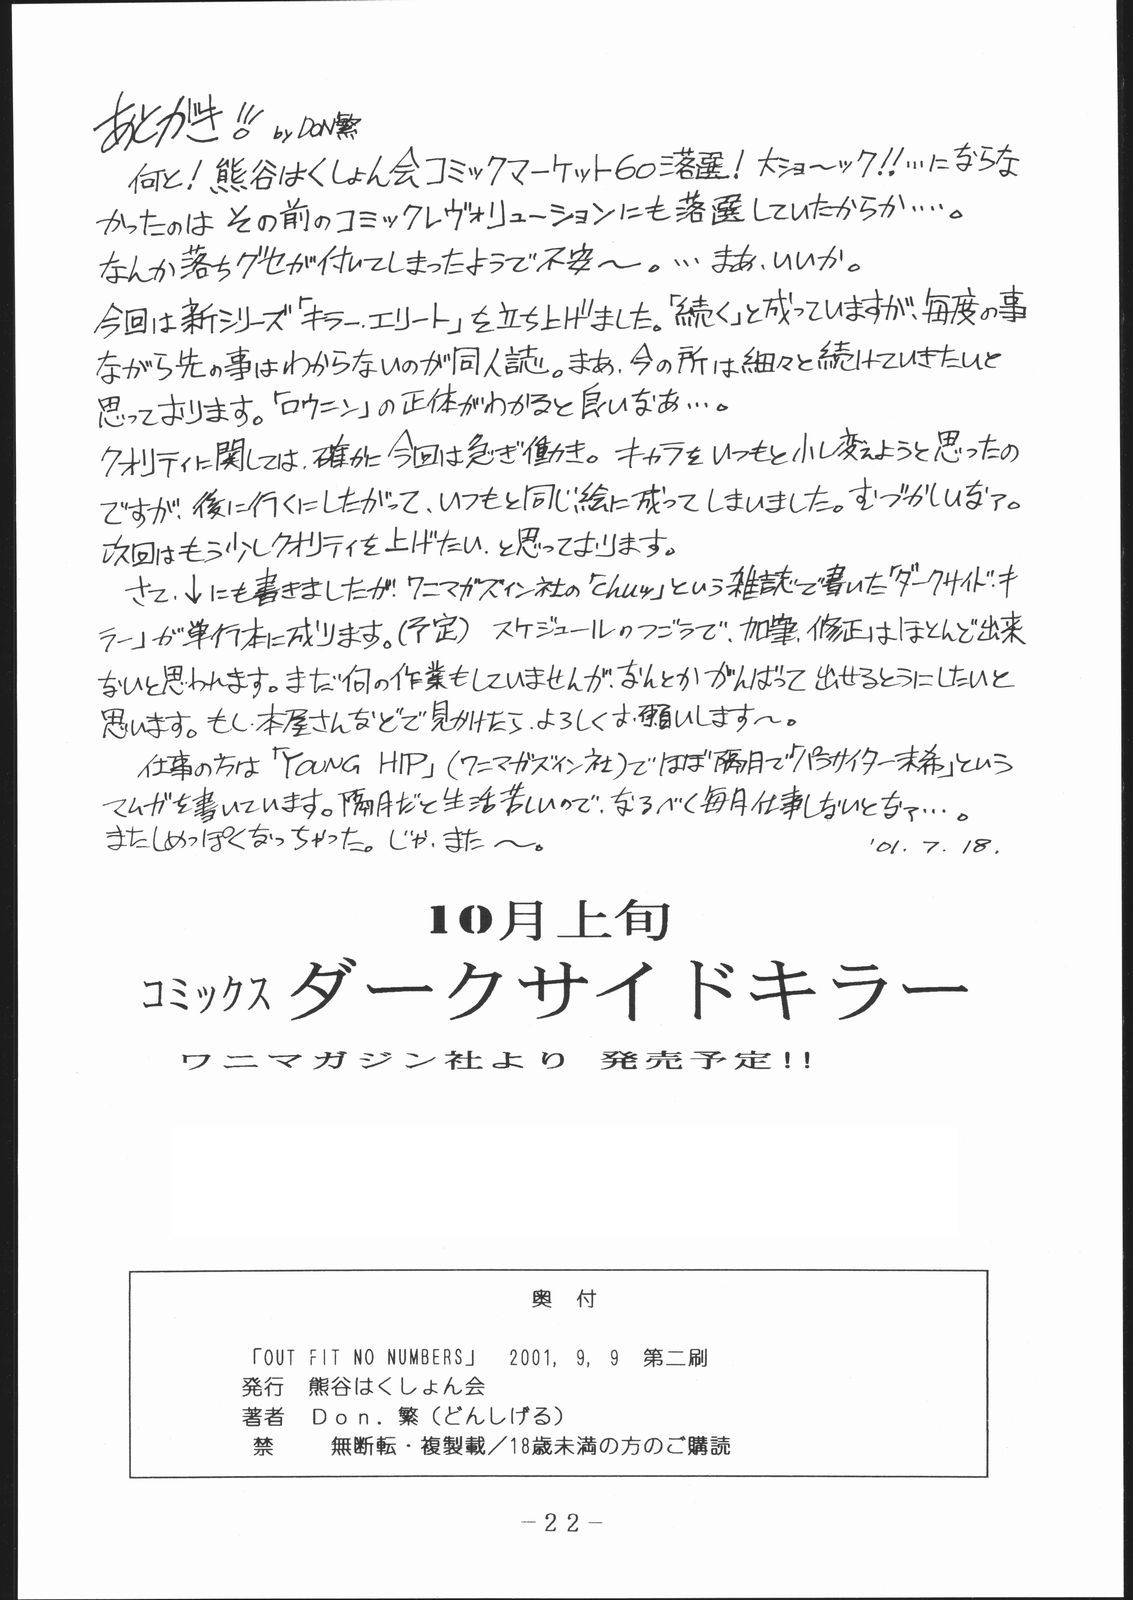 あとがき!! by DON繁
何と!熊谷はくしょん会コミックマーケット60落選!大ショ〜ック!!…にならな
かったのは その前のコミックレヴォリューションにも落選していたからか…‥。
なんか落ちグセが付いてしまったようで不安〜。…まあ、いいか。
今回は新シリーズ「キラー・エリート」を立ち上げました。「続く」と成っていますが、毎度の事
ながら先の事はわからないのが同人誌。まあ、今の所は細々と続けていきたいと
思っております。「ロウニン」の正体がわかると良いなあ…。
クオリティに関しては、確かに今回は急ぎ働き。キャラをいつもと少し変えようと思ったの
ですが、後に行くにしたがって、いつもと同じ絵に成ってしまいました。むづかしいなァ。
次回はもう少しクオリティを上げたい、と思っております。
さて、↓にも書きましたが、ワニマガズィン社の「Chuッ」という雑誌で書いた「ダークサイド・キ
ラー」が単行本に成ります。(予定) スケジュールのつごうで、加筆、修正はほとんど出来
ないと思われます。まだ何の作業もしていませんが、なんとかがんばって出せるようにしたいと
思います。もし、本屋さんなどで見かけたら、よろしくお願いします〜。
仕事の方は「YOUNG HIP」(ワニマガズィン社)でほぼ隔月で「パラサイター未希」という
マムガを書いています。隔月だと生活苦しいので、なるべく毎月仕事しないとなァ…。
またしめっぽくなっちゃった。じゃ、また〜。 '01. 7. 18.
10月上旬
コミックス ダークサイドキラー
ワニマガジン社より 発売予定!!
奥 付
「OUT FIT NO NUMBERS」 2001, 9, 9 第二刷
発行 熊谷はくしょん会
著者 Don. 繁(どんしげる)
禁 無断転・複製載/18歳未満の方のご購読
-22-